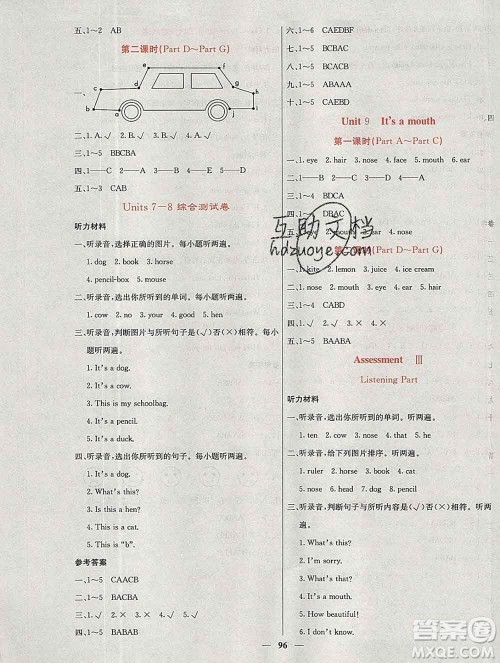 五、1～2 AB
第二课时(Part D～Part G)
一、
j i
h g d c
f e
a b
二、1. A. √ B. √ 2. A. × B. √
三、1～5 BBCBA
四、1——D 2——B 3——E 4——C 5——A
五、1～3 CAB
Units 7—8 综合测试卷
听力材料
一、听录音,选择正确的图片。每小题听两遍。
1. dog 2. book 3. cow
4. pencil-box 5. mouse
二、听录音,选出你所听到的单词。每小题听两遍。
1. cow 2. cat 3. dog 4. pencil 5. book
三、听录音,判断图片与所听句子是(√)否(×)相符。每小题听两遍。
1. It's a dog.
2. It's a cow.
3. This is my schoolbag.
4. It's a pencil.
5. It's a duck.
四、听录音,选出你所听到的句子。每小题听两遍。
1. It's a dog.
2. What's this?
3. Is this a hen?
4. It's a cat.
5. This is “b”.
参考答案
一、1～5 CAACB
二、1～5 BACBA
三、1. √ 2. × 3. √ 4. × 5. √
四、1～5 BABAB
六、1～6 CAEDBF
七、1～5 BCBAC
八、1～5 BCACB
九、1～5 ABAAA
十、1～5 CAEBD
Unit 9 It's a mouth
第一课时(Part A～Part C)
一、1. eye 2. hair 3. nose 4. face 5. mouth
6. ear
二、1～4 BDCA
三、1～4 DBAC
四、1. mouth 2. hair 3. ear 4. nose
第二课时(Part D～Part G)
一、1. kite 2. lemon 3. juice 4. ice cream
5. jeep 6. nose
三、1～4 CABD
四、1. √ 2. × 3. × 4. √
五、1～5 BAABA
Assessment Ⅲ
Listening Part
听力材料
一、听录音,选出你所听到的单词。听两遍。
1. ten 2. cow 3. dog 4. hair 5. nose
二、听录音,给下列图片排序。听两遍。
1. ruler 2. horse 3. book 4. cat
5. hen 6. pencil
三、听录音,判断句子与所听内容是(√)否(×)相符。听两遍。
1. What's this?
2. I'm sorry.
3. It's a mouse.
4. It's a mouth.
5. How beautiful!
6. I don't know.
互助文档
hdzuoye.com
96
答案圈
MXQE.COM